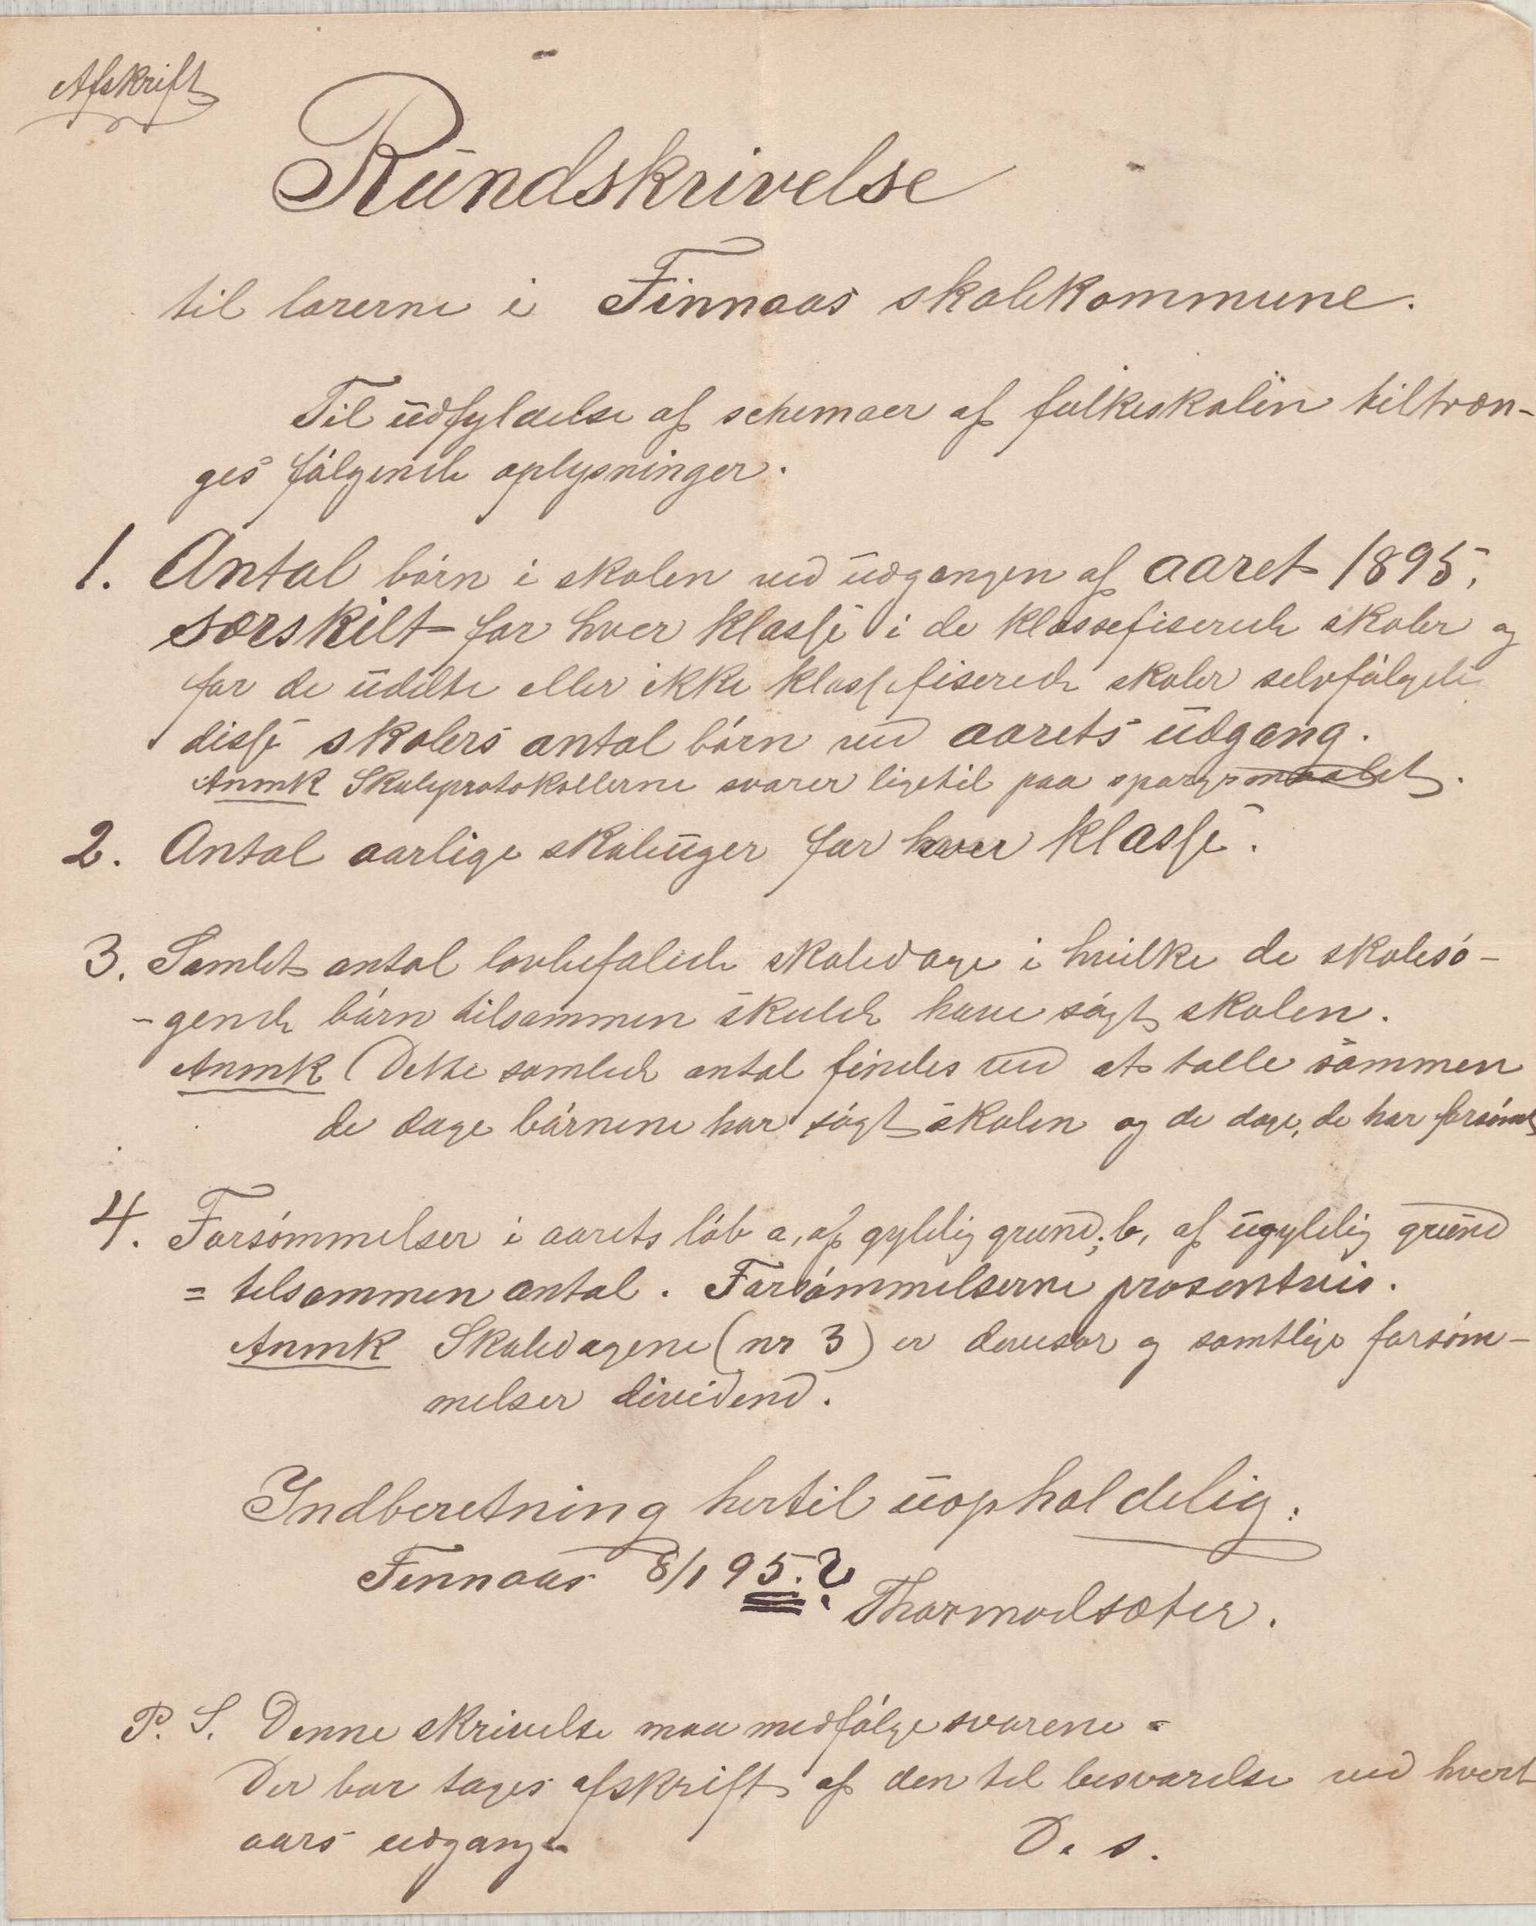 Afskrift
Rundskrivelse
til lærerne i Finnaas skolekommune.
Til udfyldelse af schemaer af folkeskolen tiltræn-
ges følgende oplysninger.
1. Antal børn i skolen ved udgangen af aaret 1895,
særskilt for hver klasse i de klassefiserede skoler og
for de udelte eller ikke klassefiserede skoler selvfølgelig
disse skolers antal børn ved aarets udgang.
Anmk Skoleprotokollerne svarer ligetil paa spørgsmaalet.
2. Antal aarlige skoleuger for hver klasse.
3. Samlet antal lovbefalede skoledage i hvilke de skolesø-
-gende børn tilsammen skulde have søgt skolen.
Anmk (Dette samlede antal findes ved at tælle sammen
de dage børnene har søgt skolen og de dage, de har forsømt
4. Forsømmelser i aarets løb a, af gyldig grund; b, af ugyldig grund
= tilsammen antal. Forsømmelserne prosentvis.
Anmk Skoledagene (nr 3) er devisor og samtlige forsøm-
melser dividend.
Indberetning hertil uopholdelig.
Finnaas 8/1 95.?
Thormodsæter.
P. S. Denne skrivelse maa medfølge svarene.
Der bør tages afskrift af den til besvarelse ved hvert
aars udgang.
D. s.